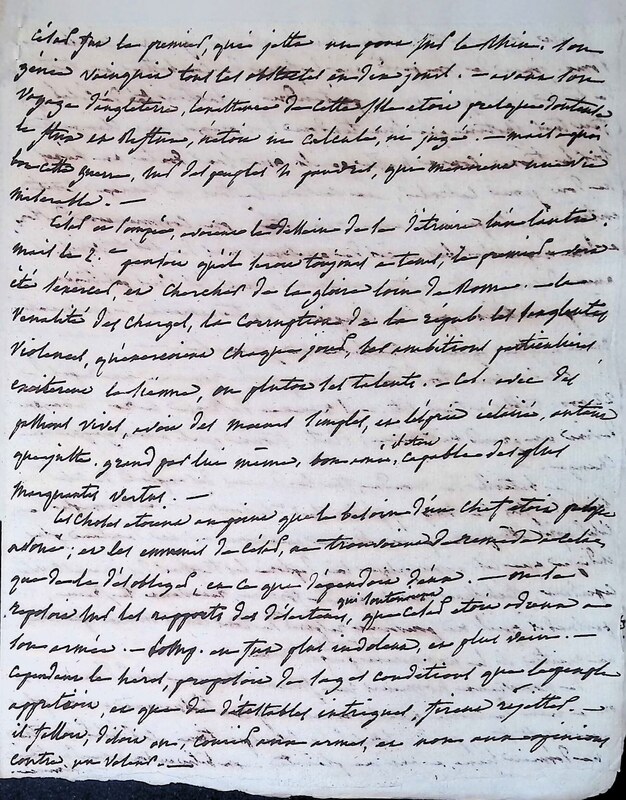 César fut le premier, qui jetta un pont sur le Rhin. son
génie vainquit tous les obstacles en dix jours. — avant son
voyage d'angleterre, l'existence de cette isle etoit presque douteuse
le flux et Reflux, netoit ni calculé, ni jugé. — mais a quoi
bon cette guerre, sur des peuples si pauvres, qui menoient une vie
miserable. —
César et pompée, avoient le dessein de se détruire l'un l'autre.
mais le 2.e pensoit qu'il seroit toujours a tems, le premier avoit
été s'exercer, et chercher de la gloire loin de Rome. — la
venalité des charges, la corruption de la répub. les sanglantes
violences, qu'exercoient chaque jour, les ambitions particulieres
exciterent la sienne, ou plutot ses talents. — Cés. avec des
passions vives, avoit des moeurs simples, et l'esprit éclairé, autant
que juste. grand par lui même, bon ami, capable des plus
marquantes vertus. —
Les choses etoient au point que le besoin d'un chef etoit presque
avoué; et les ennemis de César, ne trouvoient de remede a celui
que de le désobliger, en ce que dépendoit d'eux. — on se
reposoit sur les rapports des déserteurs, qui soutenoient que César etoit odieux a
son armée. — Pomp. en fut plus indolent, et plus vain. —
cependant le héros, proposoit de sages conditions que le peuple
appuioit, et que de détestables intrigues, firent rejetter. —
il falloit, disoit on, courir aux armes, et non aux opinions
contre un voleur. —